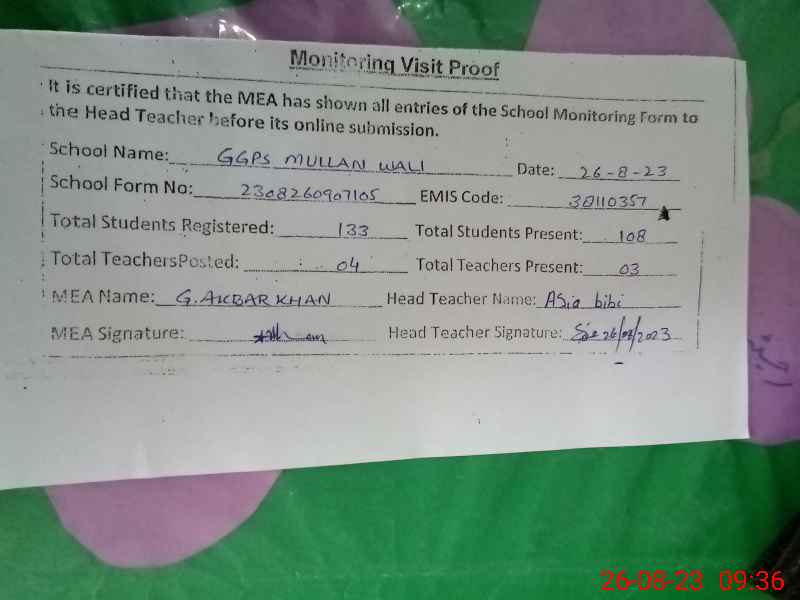 Monitoring Visit Proof
It is certified that the MEA has shown all entries of the School Monitoring Form to
the Head Teacher before its online submission.
School Name: GGPS MULLAN WALI Date: 26-8-23
School Form No: 2308260907105 EMIS Code: 38110357
Total Students Registered: 133 Total Students Present: 108
Total TeachersPosted: 04 Total Teachers Present: 03
MEA Name: G.AKBAR KHAN Head Teacher Name: Asia bibi
MEA Signature: Head Teacher Signature: 26/08/2023
26-08-23 09:36